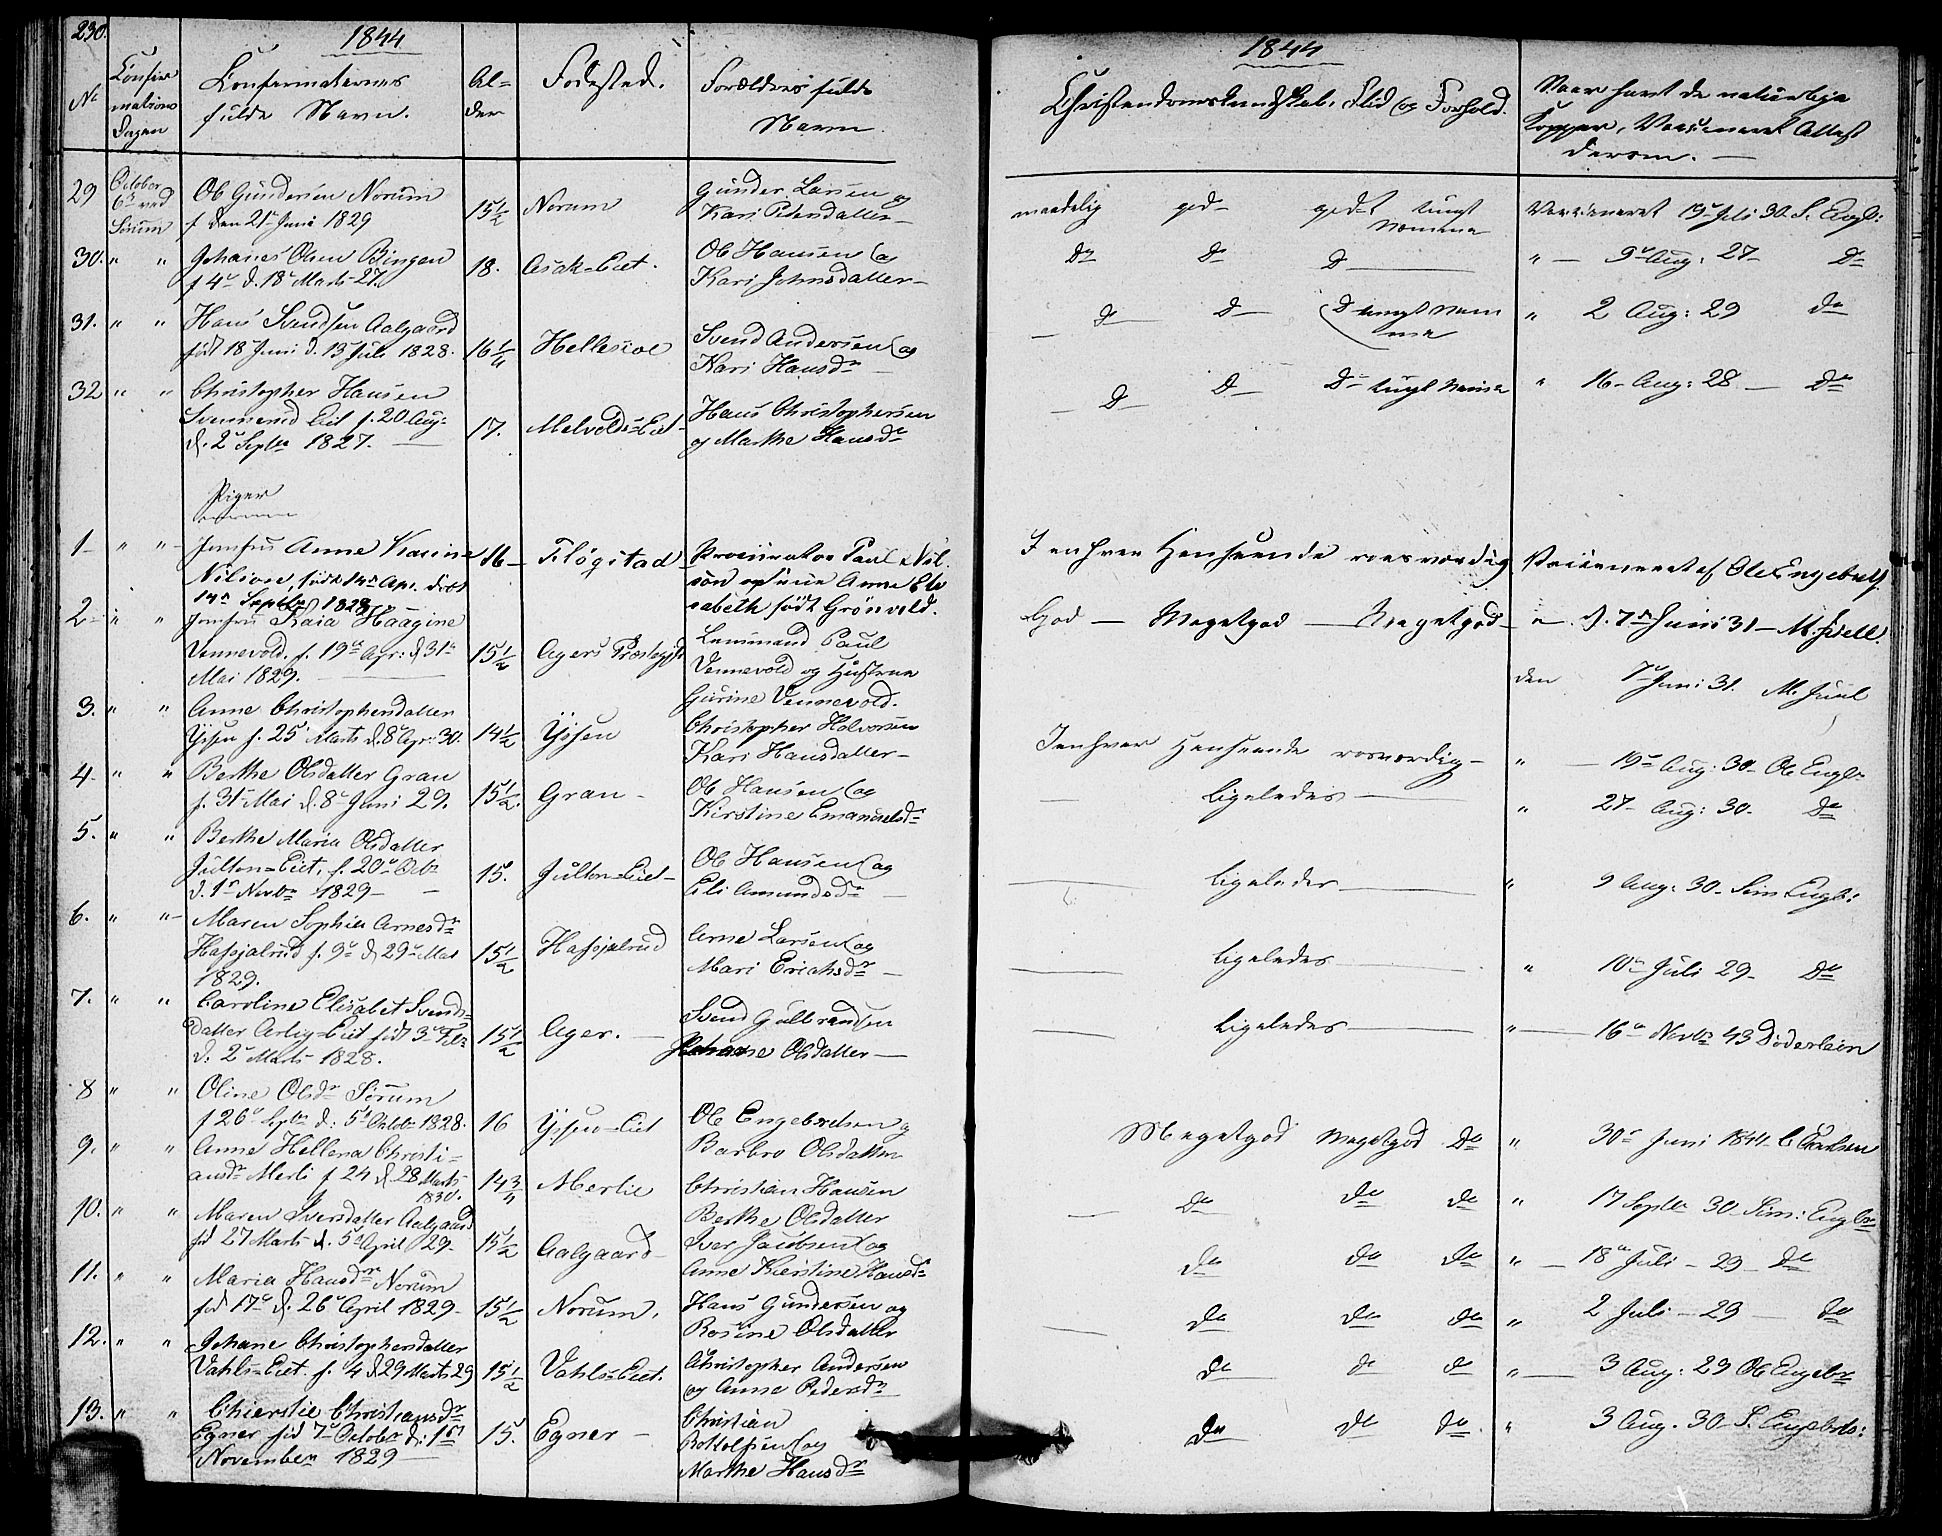 230.
1844
No
Confir
mations
Dagen
Confirmaternes
fulde Navn.
Al=
der
Fødested.
Forældres fulde
Navn.
29
October
6te ved
Sørum
Ole Gundersen Norum
f den 21de Juni 1829
15½
Norum
Gunder Larsen og
Kari Pedersdatter
30. " "
Johanes Olsen Bingen
f 4de d. 18de Marts 27.
18.
Asak=Eiet.
Ole Hansen og
Kari Johnsdatter
31. " "
Hans Svendsen Aalgaard
født 18 Juni d. 13 Juli 1828.
16¼
Svend Andersen og
Kari Hansdr
32 " "
Christopher Hansen
Eiet f. 20 Aug:
d. 2de Septbr 1827.
17.
Hans Christophersen
og Marthe Hansdr
Piger
1 " "
Jomfru Anne Karine
Nilson, født 14de Apr. døbt
14de Septbr 1828
16
Fløgstad
Procurator Paul Nil
son og Frue Anne Eli
sabeth født Grönvold.
2 " "
Jomfru Kaia Haagine
Vennevold. f. 19de Apr: d 31te
Mai 1829.
15½
Agers Præstegjd
Lensmand Paul
Vennevold og Hustrue
Gurine Vennevold.
3. " "
Anne Christophersdatter
f. 25de Marts d. 8de Apr: 30.
14½
Christopher Halvorsen
Kari Hansdatter
4 " "
Berthe Olsdatter Gran
f. 31te Mai d. 8de Juni 29.
15½
Gran
Ole Hansen og
Kirstine Emanuelsdr
5. " "
Berthe Maria Olsdatter
Julton=Eiet, f. 20de Octbr
d. 1te Novbr 1829
15.
Julton=Eiet
Ole Hansen og
Eli Amundsdr
6. " "
Maren Sophia Arnesdr
Hafsjalrud f. 9de d 29de Mai
1829.
15½
Hafsjalrud
Arne Larsen og
Mari Erichsdr
7. " "
Caroline Elisabet Svends=
datter Eiet født 3de Febr
d. 2de Marts 1828.
15½
Ager.
Svend Gulbrandsen
Johanne Olsdatter
8 " "
Oline Olsdr Sørum
f 26de Septbr d: 5te Octobr 1828.
16
Ole Engebretsen og
Barbro Olsdatter
9. " "
Anne Hellena Christi=
ansdr Merli f 24 d. 28 Marts
1830.
14¾
Merlie
Christian Hansen
Berthe Olsdatter
10. " "
Maren Iversdatter Aalgaard
fød 27 Marts d. 5te April 29
15½
Aalgaard
Iver Jacobsen og
Anne Kierstine Hansdr
11. " "
Maria Hansdr Norum
fød 17de d. 26de April 1829
15½
Norum.
Hans Gundersen og
Rosine Olsdatter
12. " "
Johane Christophersdatter
Vahls=Eiet. f. 4 d 29 Marts 29
15½
Vahls=Eiet.
Christopher Andersen
og Anne Pedersdr
13. " "
Chierstie Christiansdr
Egner fød 7de Octobr d: 1ste
November 1829
15.
Egner
Christian
Bottolfsen og
Marthe Hansdr
1844
Christendomskundskab, Flid og Forhold.
Naar havt de naturlige
Kopper, Vaccineret Attest
derom.
maadelig god godt tungt
Nemme
Vaccineret 19de Juli 30. S. Engb:
do do do
" 9de Aug: 27 do
do do do tungt Nem
me
" 2 Aug: 29 do
do do do tungt Nemme
" 16 Aug: 28 do
I enhver Henseende roesværdig
Vaccineret af Ole Engebretsn
God Megetgod Megetgod
" d. 7de Juni 31 M. Juell.
den 7de Juni 31. M. Juel
I enhver Henseende roesværdig
" 19de Aug: 30 Ole Engbr
ligeledes
" 27 Aug: 30. do
ligeledes
" 9 Aug: 30 Sim Engb:
ligeledes
" 10de Juli 29 do
ligeledes
" 16de Novbr 43 Døderlein
Megetgod Megetgod do
" 30te Juni 1844
do do do
" 17 Septbr 30 Sim: Engbr
do do do
" 18de Juli 29 do
do do do
" 2 Juli 29 do
do do do
" 3 Aug: 29 Ole Engebr
do do do
" 3 Aug. 30 S. Engebrts: